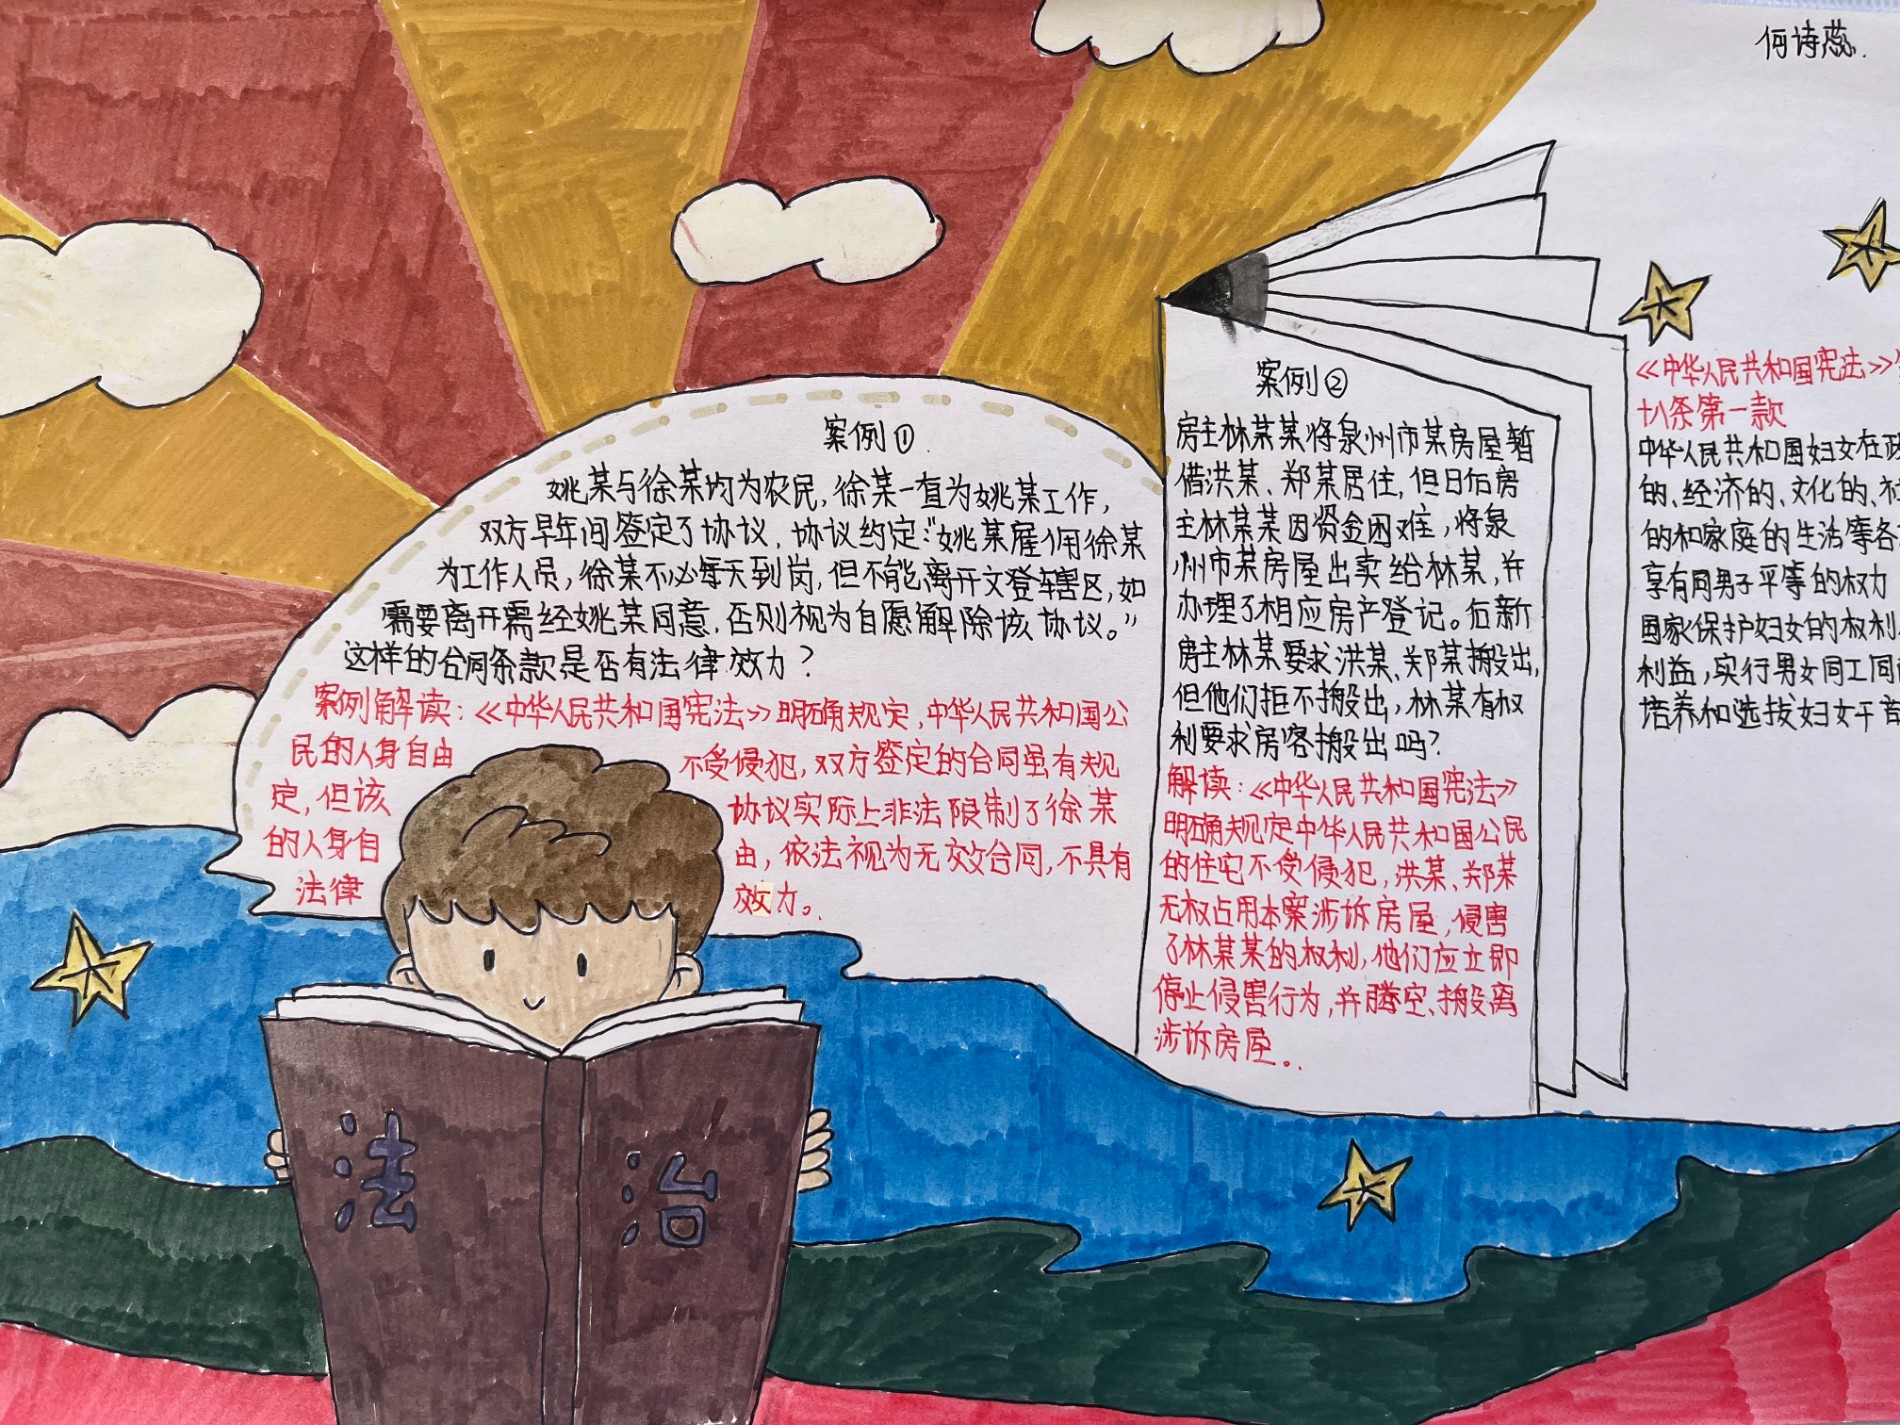 何诗蕊.
案例①
姚某与徐某均为农民,徐某一直为姚某工作,
双方早年间签定了协议,协议约定:"姚某雇佣徐某
为工作人员,徐某不必每天到岗,但不能离开文登辖区,如
需要离开需经姚某同意,否则视为自愿解除该协议。"
这样的合同条款是否有法律效力?
案例解读:《中华人民共和国宪法》明确规定,中华人民共和国公
民的人身自由 不受侵犯,双方签定的合同虽有规
定,但该 协议实际上非法限制了徐某
的人身自 由,依法视为无效合同,不具有
法律 效力。
案例②
房主林某某将泉州市某房屋暂
借洪某、郑某居住,但日后房
主林某某因资金困难,将泉
州市某房屋出卖给林某,并
办理了相应房产登记。后新
房主林某要求洪某、郑某搬出,
但他们拒不搬出,林某有权
利要求房客搬出吗?
解读:《中华人民共和国宪法》
明确规定中华人民共和国公民
的住宅不受侵犯,洪某、郑某
无权占用本案涉诉房屋,侵害
了林某某的权利,他们应立即
停止侵害行为,并腾空、搬离
涉诉房屋。
《中华人民共和国宪法》
十八条第一款
中华人民共和国妇女在政
的、经济的、文化的、社
的和家庭的生活等各
享有同男子平等的权力
国家保护妇女的权利
利益,实行男女同工同
培养和选拔妇女干部
法治